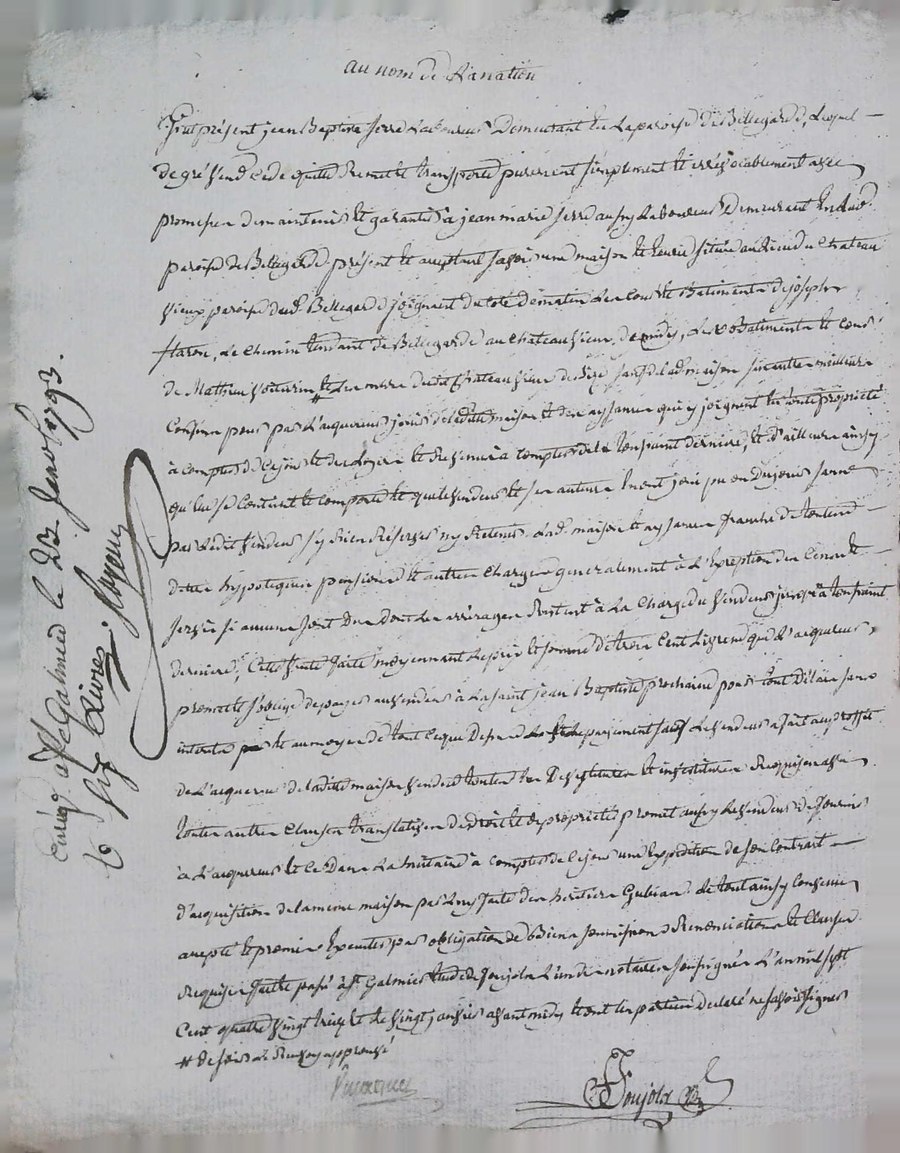 au nom de La nation
Fut présent jean Baptiste serre Laboureur Demeurant en La paroisse de Bellegarde, Lequel
de gré vend cede quitte Remet et transporte purement simplement et irrévocablement avec
promesse de maintenir et garantir à jean marie serre aussy Laboureur Demeurant en lad.
paroisse de Bellegarde présent et acceptant savoir une maison et Ecurie située au Lieu du Chateau
vieux paroisse dud. Bellegarde joignant du coté de matin Les Cour et Batiments de joseph
Le Chemin tendant de Bellegarde au Chateau vieux, de midy, Les Batiments et Cour
de Mathieu voiturin # de bize sauf de lad. maison ses autres meilleurs
Confins pour par L'acquereur jouir de ladite maison et des aysances qui y joignent en toute propriété
à compter de Ce jour et des Loyers et Revenus à Compter de la toussaint derniere, et d'ailleurs ainsy
qu'elle se Contient et comporte et que le vendeur et ses auteurs en ont joui pu ou Du jouir sans
par Ledit vendeur s'y Rien Réserver ny Retenir. Lad. maison et aysances franche de toutes
dettes hypoteques pensions et autres Charges generalement à L'Exception des Cens et
servis si aucuns sont Dus dont Les arrérages Restent à La Charge du vendeur jusqu'à toussaint
derniere, Cette vente faite moyennant Le prix et somme de trois Cent Livres que L'acquereur
promet et s'oblige de payer au vendeur à La saint jean Baptiste prochaine pour tout Délai sans
interets et au moyen de tout Ce que Dessus Le vendeur a fait au proffit
de L'acquereur de ladite maison vendue toutes Les Dévestitures et investitures Requises avec
toutes autres Clauses translatives de droit et de propriété promet aussy Le vendeur de fournir
à L'acquereur et Ce Dans La huitaine à Compter de Ce jour une Expédition de son Contrat
d'acquisition de la meme maison par Luy faite des heritiers Gubian. Le tout ainsy Convenu
accepté et promis Executer par obligation de Biens soumissions Renonciations et Clauses
Requises faite et passé à st Galmier Etude de Poujola L'un des notaires soussignés L'an mil sept
Cent quatre vingt treize et le vingt janvier avant midy et ont les parties Declaré ne savoir signer
# de soir ce Renvoy approuvé
Poujola
Enrég. à st Galmier le 23 Janv. 1793.
Six Livres